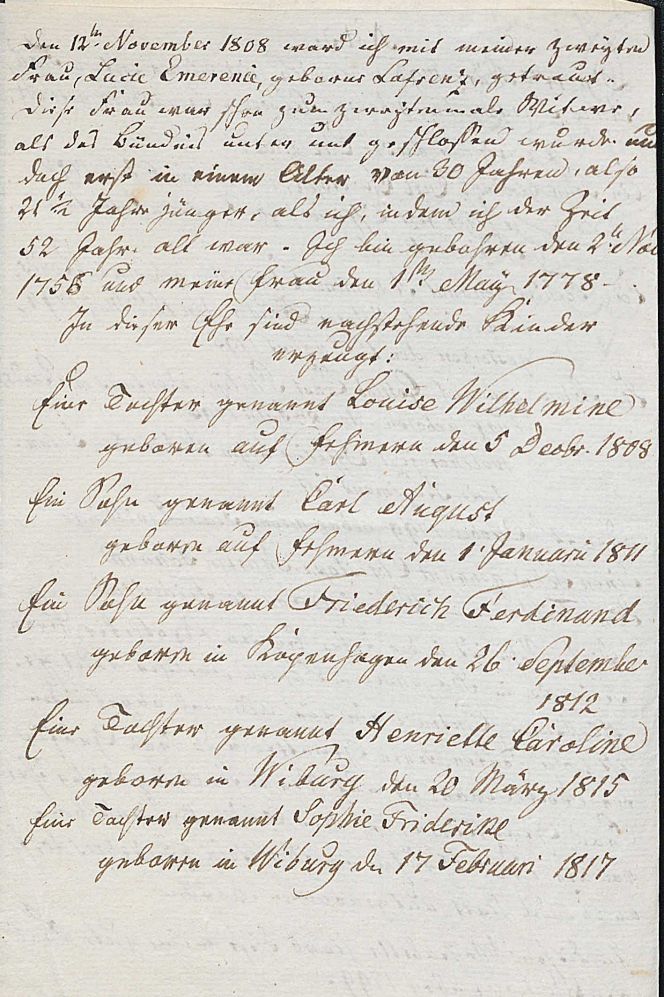 Den 12ten November 1808 ward ich mit meiner zweyten
Frau, Lucie Emerenie, geborne Lafrenz, getraut.
Diese Frau war schon zum zweytenmale Witwe,
als das Bündnis unter uns geschlossen wurde und
doch erst in einem Alter von 30 Jahren, also
21 1/2 Jahre jünger, als ich, indem ich der Zeit
52 Jahr alt war. Ich bin gebohren den 2n Nov
1756 und meine Frau den 1ten May 1778.
In dieser Ehe sind nachstehende Kinder
erzeugt:
Eine Tochter genannt Louise Wilhelmine
geboren auf Fehmern den 5 Decbr. 1808
Ein Sohn genannt Carl August
geboren auf Fehmern den 1. Januarii 1811
Ein Sohn genannt Friederich Ferdinand
geboren in Kopenhagen den 26 September
1812
Eine Tochter genannt Henriette Caroline
geboren in Wiburg den 20 März 1815
Eine Tochter genannt Sophie Friderike
geboren in Wiburg den 17 Februari 1817